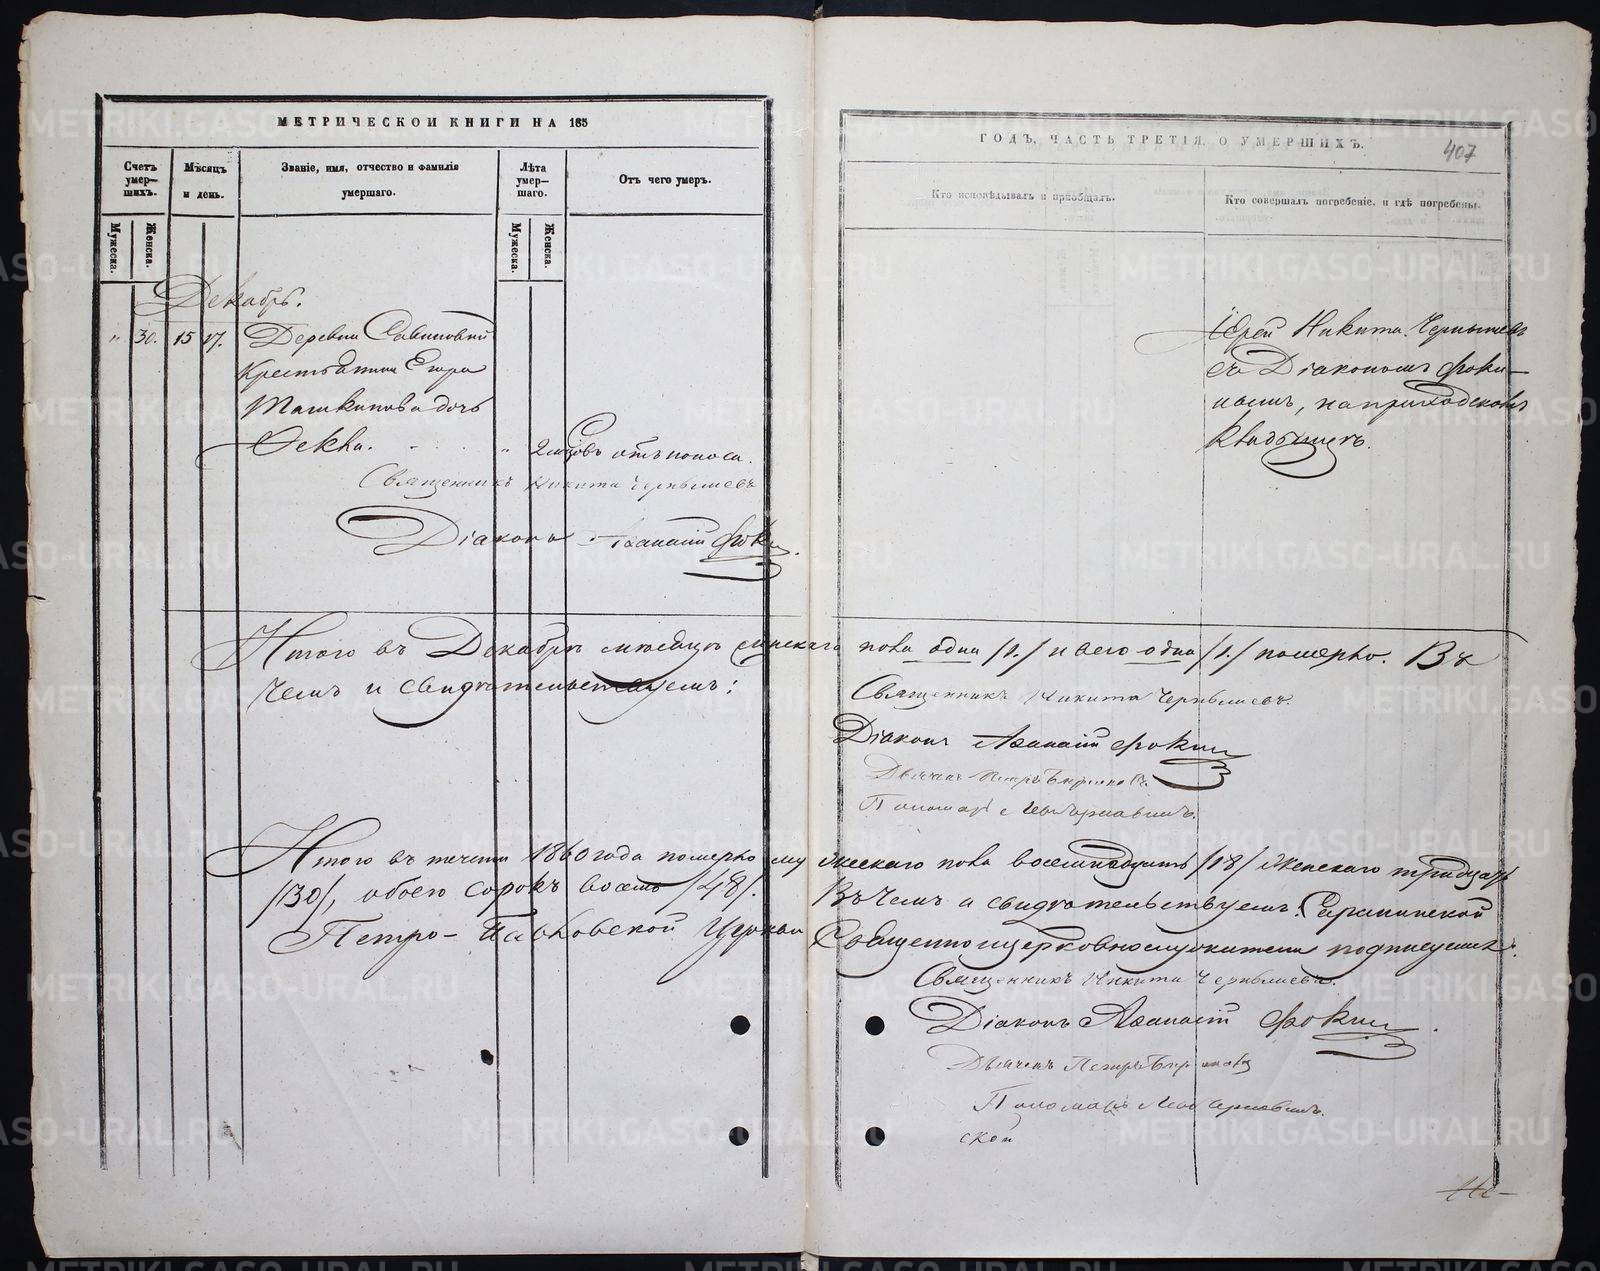 МЕТРИЧЕСКОЙ КНИГИ НА 185
Счетъ умер-шихъ.
Мужеска.
Женска.
Мѣсяцъ и день.
Званіе, имя, отчество и фамилія умершаго.
Лѣта умер-шаго.
Мужеска.
Женска.
Отъ чего умеръ.
Декабрь.
" 30. 15 17. Деревни Савиновой
Крестьянина Егора
Ташкинова дочь
Фекла. " 2 мѣсцовъ отъ поноса.
Священникъ Никита Чернышевъ
Діаконъ Аѳанасій Фокин
ГОДЪ, ЧАСТЬ ТРЕТІЯ, О УМЕРШИХЪ.
407
Кто исповѣдывалъ и пріобщалъ.
Кто совершалъ погребеніе, и гдѣ погребены.
Іерей Никита Чернышевъ
съ Діакономъ Фоки-
нымъ, на приходскомъ
кладбищѣ.
Итого въ Декабрѣ мѣсяцѣ женскаго пола одна /1./ и всего одна /1./ померло. Въ
чемъ и свидѣтельствуемъ:
Священникъ Никита Чернышевъ.
Діаконъ Аѳанасій Фокин
Дьячекъ Петръ
Пономарь
Итого въ теченіи 1860 года померло мужескаго пола восемнадцать /18/ женскаго тридцать
/30/, обоего сорокъ восемь /48/. Въ чемъ и свидѣтельствуемъ.
Петро-Павловской Церкви Священноцерковнослужители подписуемся:
Священникъ Никита Чернышевъ.
Діаконъ Аѳанасій Фокин
Дьячекъ Петръ
Пономарь
ской
METRIKI.GASO-URAL.RU